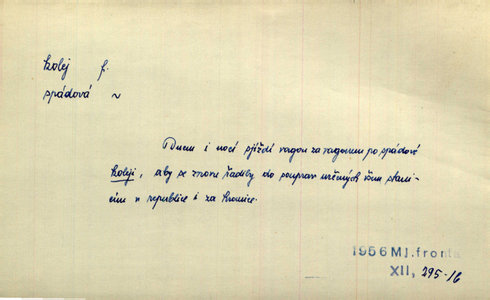 kolej f.
spádová ~
Dnem i nocí sjíždí vagon za vagonem po spádové
koleji, aby se znovu řadily do souprav určených všem stani-
cím v republice i za hranice.
1956 Ml. fronta
XII, 295-16